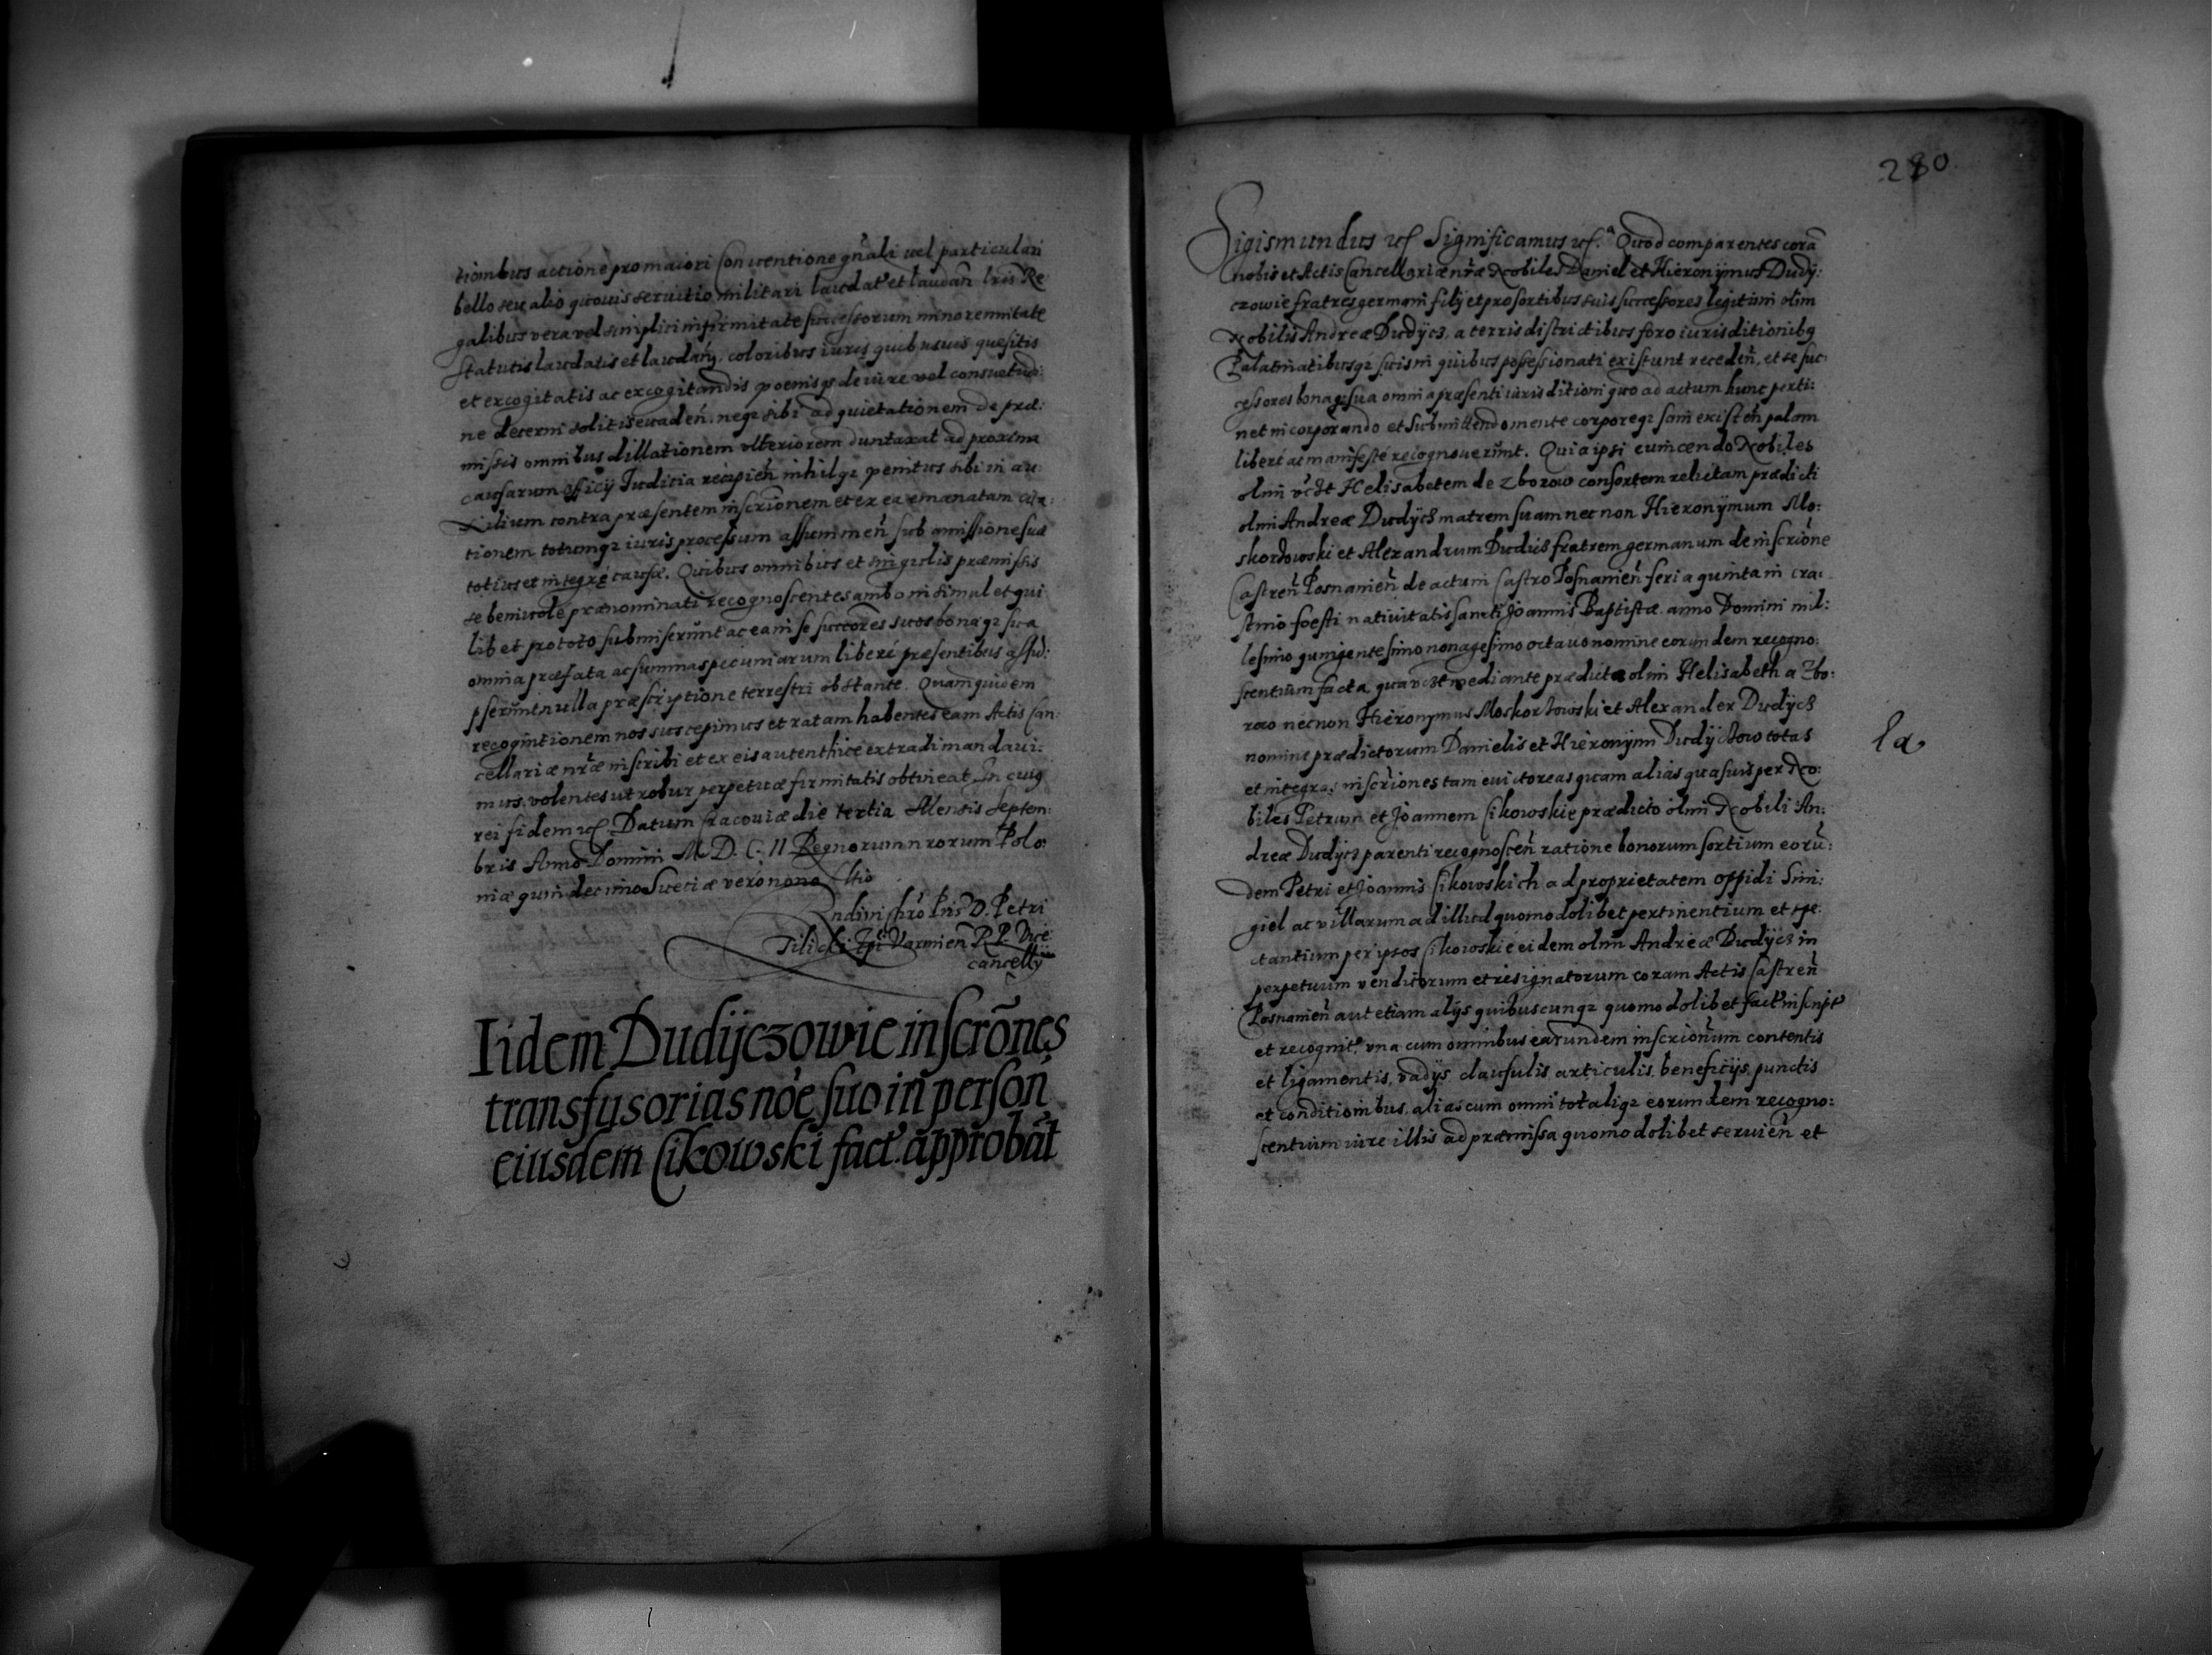 tionibus actione pro maiori Conuentione gñali uel particulari
bello seu alio quouis seruitio militari laudat͛ et laudañ lris Re
galibus vera vel simplici infirmitate successorum minorennitate
statutis laudatis et laudañ, coloribus iuris quibusuis quesitis
et excogitatis ac excogitandis poenisqꝫ de iure vel consuetudi:
ne decerni solitis euadeñ. neqꝫ sibi ad quietationem de præ:
missis omnibus dillationem vlteriorem duntaxat ad proxima
causarum officij Iudicia recipieñ nihilqꝫ penitus sibi in au:
xilium contra præsentem inscrionem et ex ea emanatam cita:
tionem totumqꝫ iuris processum assummeñ sub amissione suæ
totius et integræ causæ. Quibus omnibus et singulis præmissis
se beniuole prænominati recognoscentes ambo insimul et qui
libet pro toto submiserunt ac eam se succores suos bonaqꝫ sua
omnia præfata ac summas pecuniarum liberé præsentibus assũ:
pserunt nulla præscriptione terrestri obstante. Quam quidem
recognitionem nos suscepimus et ratam habentes eam Actis Can:
cellariæ nr̃æ inscribi et ex eis autenthice extradi mandaui:
mus, volentes ut robur perpetuæ firmitatis obtineat. In cuiꝰ
rei fidem etc̃ Datum Cracouiæ die tertia Mensis Septem:
bris Anno Domini M. D. C. II Regnorum nrorum Polo:
niæ quindecimo Sueciæ veró nono
D. Petri
Tilicki Epi Varmieñ R P. Vice
cancellij
Iidem Dudijczowie inscrõnes
transfusorias nõe suo in person
eiusdem Cikowski fact͛ approbãt
280
Sigismundus etc̃ Significamus etc̃. Quod comparentes corã
nobis et Actis Cancellariæ nr̃æ Nobiles Daniel et Hieronÿmus Dudÿ:
czowie fratres germani filij et pro sortibus suis successores legitimi olim
Nobilis Andreæ Dudÿcz, a terris districtibus foro iurisditionibꝰ
Palatinatibusqꝫ suis in quibus possessionati existunt recedeñ, et se suc:
cessores bonaqꝫ sua omnia præsenti iurisditioni quo ad actum hunc perti:
net incorporando et submittendo mente corporeqꝫ sani existeñ palam
liberé ac manifesté recognouerunt. Quia ipsi euincendo Nobiles
olim vczt Helisabetem de Zborow consortem relictam prædicti
olim Andreæ Dudÿcz matrem suam nec non Hieronÿmum Mo:
skorzowski et Alexandrum Dudicz fratrem germanum de inscrione
Castreñ Posnanieñ de actu in Castro Posnanieñ feria quinta in cra:
stino foesti natiuitatis sancti Joannis Baptistæ anno Domini mil:
lesimo quingentesimo nonagesimo octauo nomine eorundem recogno:
scentium facta, qua vczt mediante prædicta olim Helisabeth a Zbo:
row necnon Hieronymus Moskorzowski et Alexander Dudÿcz
nomine prædictorum Danielis et Hieronÿmi Dudÿczow totas
la
et integras inscriones tam euictoreas quam alias quasuis per No:
biles Petrum et Joannem Cikowskie prædicto olim Nobili An:
dreæ Dudÿcz parenti recognosceñ ratione bonorum sortium eorũ:
dem Petri et Joannis Cikowskich ad proprietatem oppidi Smi:
giel ac villarum ad illud quomodolibet pertinentium et spe:
ctantium per ipsos Cikowskie eidem olim Andreæ Dudÿcz in
perpetuum venditorum et resignatorum coram Actis Castreñ
Posnanieñ aut etiam alijs quibuscunqꝫ quomodolibet fact͛ inscript͛
et recognit͛, vna cum omnibus earundem inscrionum contentis
et ligamentis, vadijs, clausulis, articulis, beneficijs, punctis
et conditionibus, alias cum omni totaliqꝫ eorundem recogno:
scentium iure illis ad præmissa quomodolibet seruieñ et